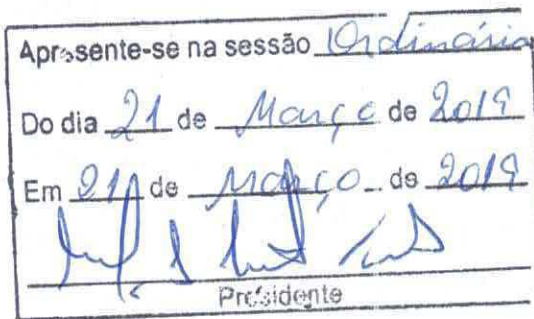 Apresente-se na sessão Ordinária
Do dia 21 de Março de 2019
Em 21 de Março de 2019
Presidente